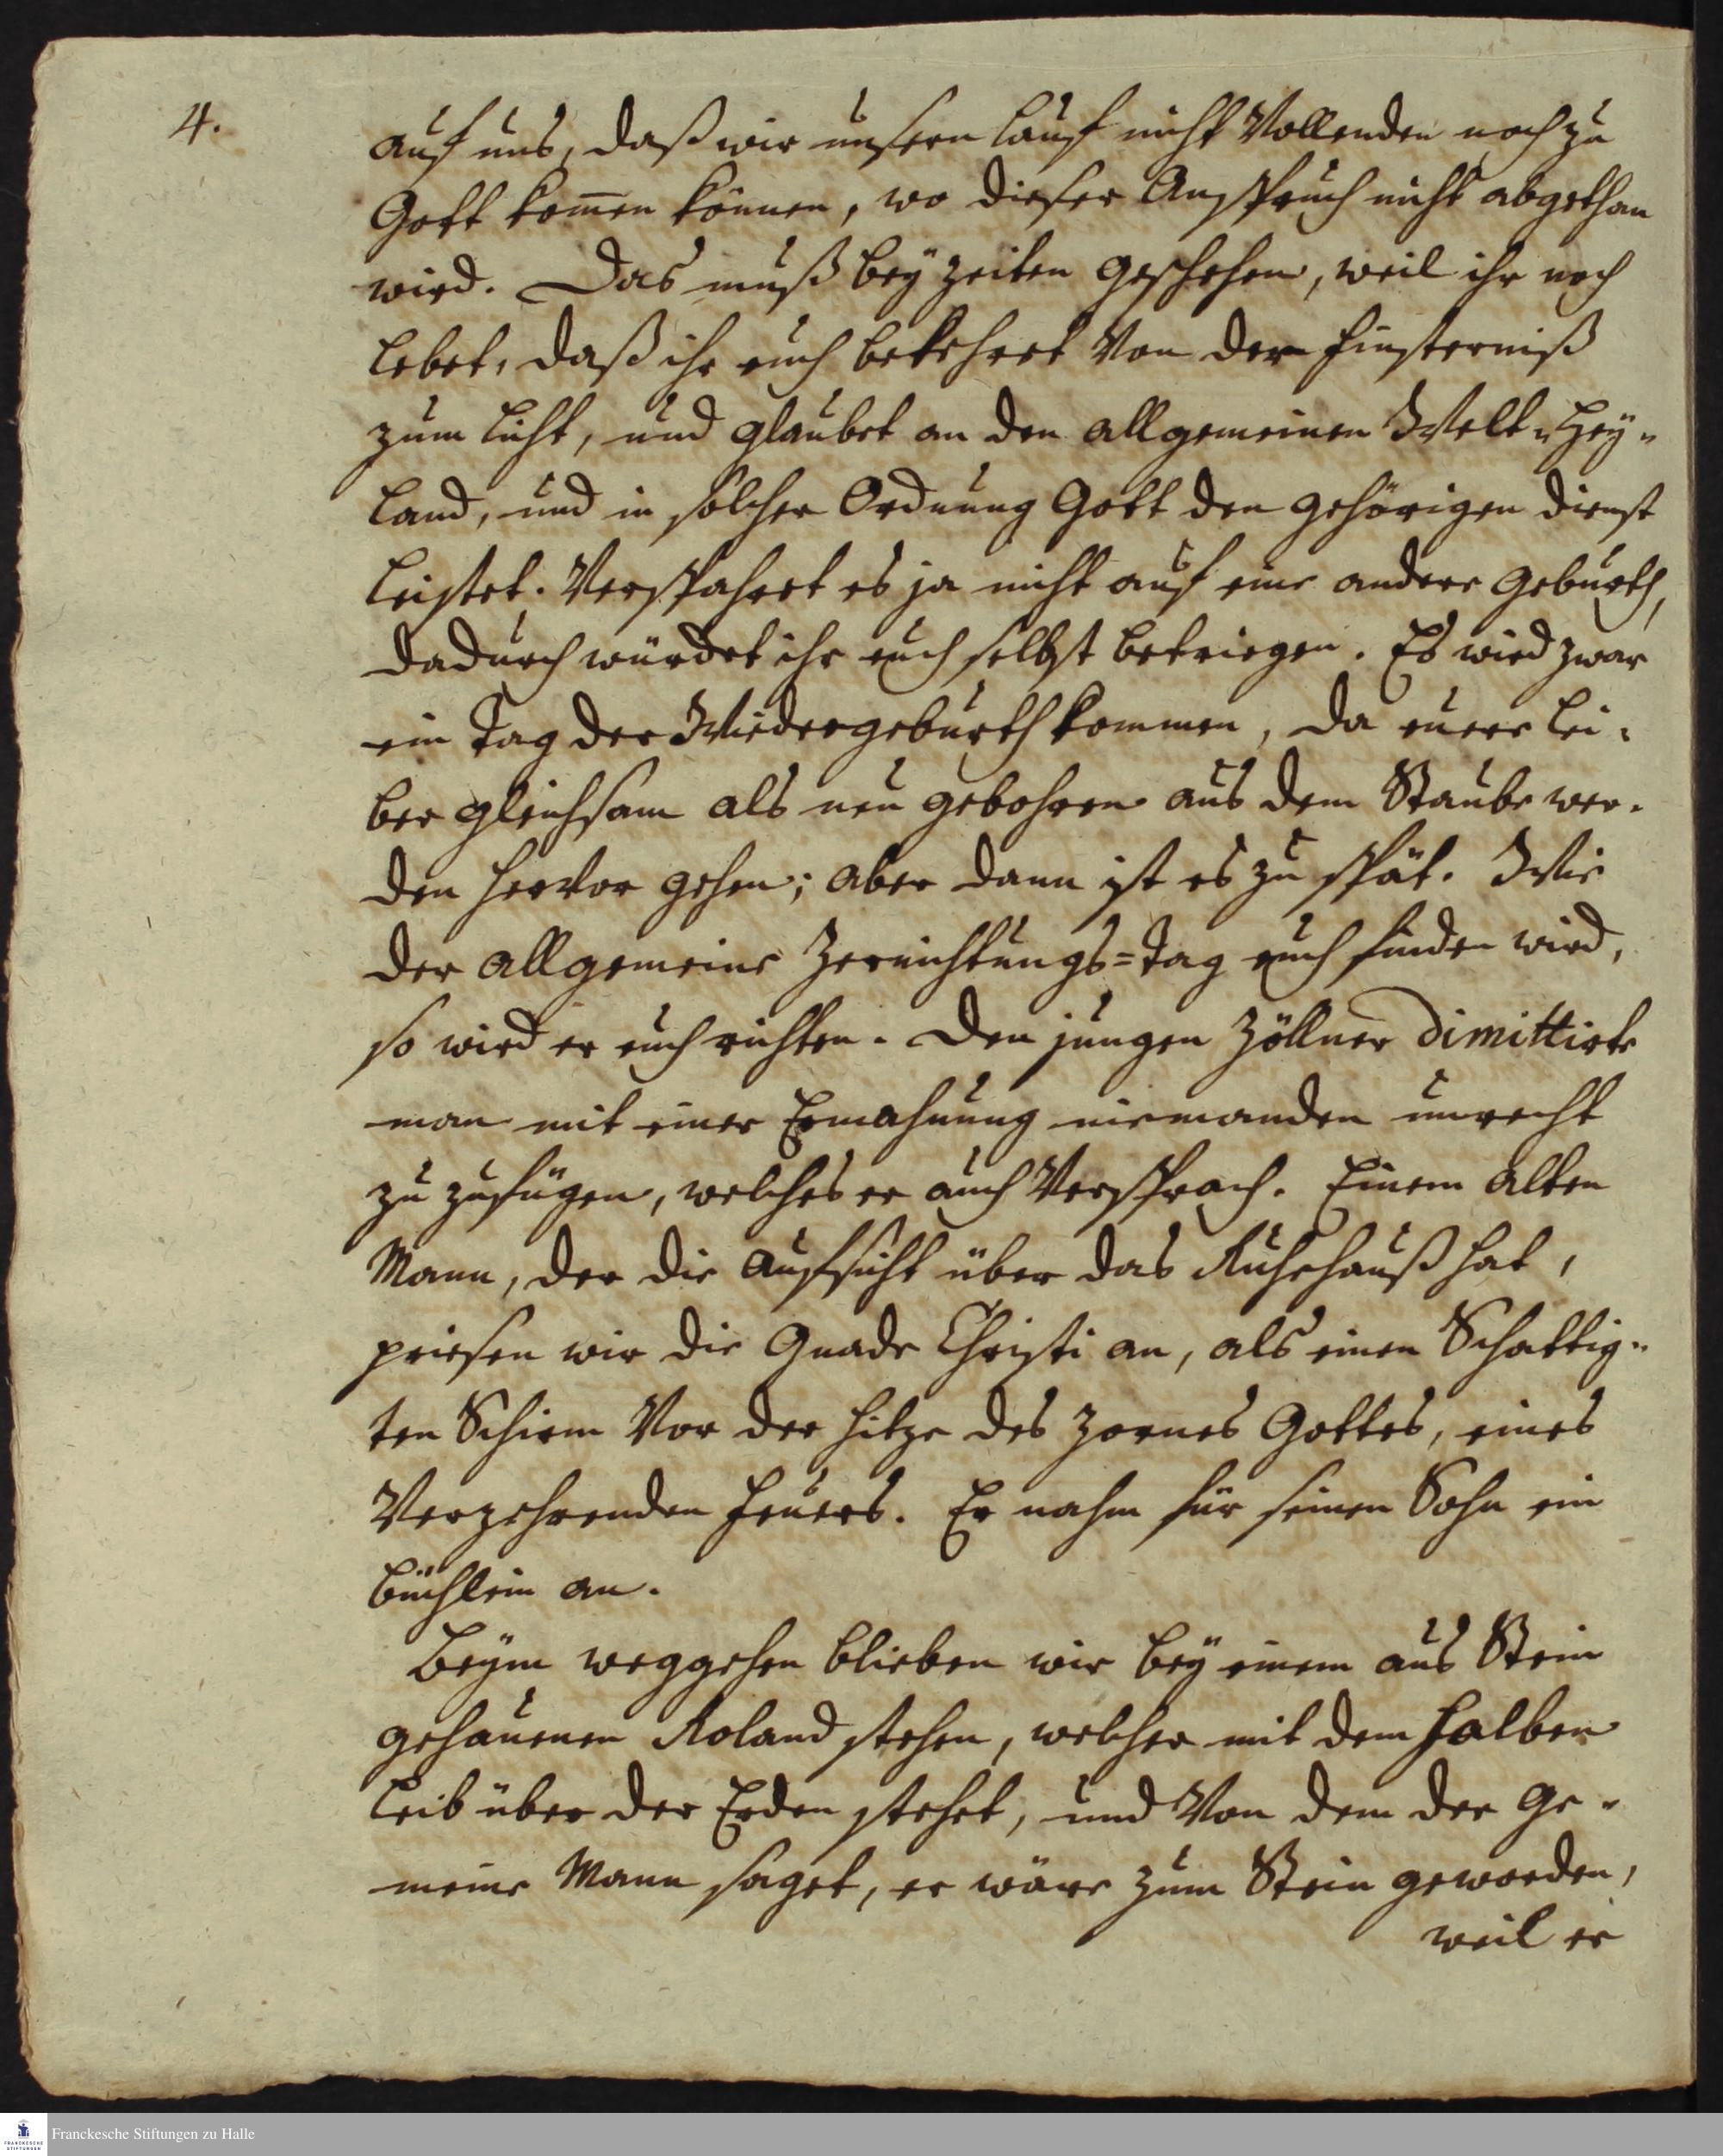 4.
auf uns, daß wir unsern Lauf nicht Vollenden noch zu
Gott kom̅en können, wo dieser Anspruch nicht abgethan
wird. Das muß bey zeiten geschehen, weil ihr noch
lebet, daß ihr euch bekehret Von der Finsterniß
zum Licht, und glaubet an den allgemeinen Welt-Hey-
land, und in solcher Ordnung Gott den gehörigen Dienst
leistet. Verspahret es ja nicht auf eine andere Geburth,
dadurch würdet ihr euch selbst betriegen. Es wird zwar
ein Tag der Wiedergeburth kommen, da euere Lei-
ber gleichsam als neu gebohren aus dem Staube wer-
den hervor gehen; aber dann ist es zu spät. Wie
der allgemeine Zernichtungs=Tag euch finden wird,
so wird er euch richten. Den jungen Zöllner dimittirte
man mit einer Ermahnung niemanden unrecht
zu zufügen, welches er auch Versprach. Einem alten
Mann, der die Aufsicht über das Ruhehauß hat,
priesen wir die Gnade Christi an, als einen Schattig-
ten Schirm Vor der Hitze des Zornes Gottes, eines
Verzehrenden Feuers. Er nahm für seinen Sohn ein
Büchlein an.
Beym weggehen blieben wir bey einem aus Stein
gehauenen Roland stehen, welcher mit dem halben
Leib über der Erden stehet, und Von dem der Ge-
meine Mann saget, er wäre zum Stein geworden,
weil er
Franckesche Stiftungen zu Halle
FRANCKESCHE
STIFTUNGEN